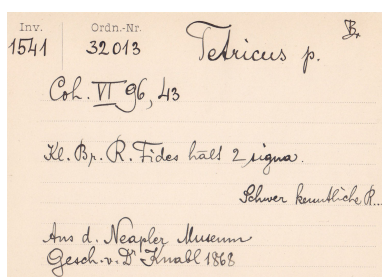 Inv. Ordn.-Nr.
1541 32013 Tetricus p. Br
Coh. VI 96, 43
Kl. Br. R. Fides hält 2 signa.
Schwer kenntliche R...
Aus d. Neapler Museum
Gesch. v. Dr Knabl 1868